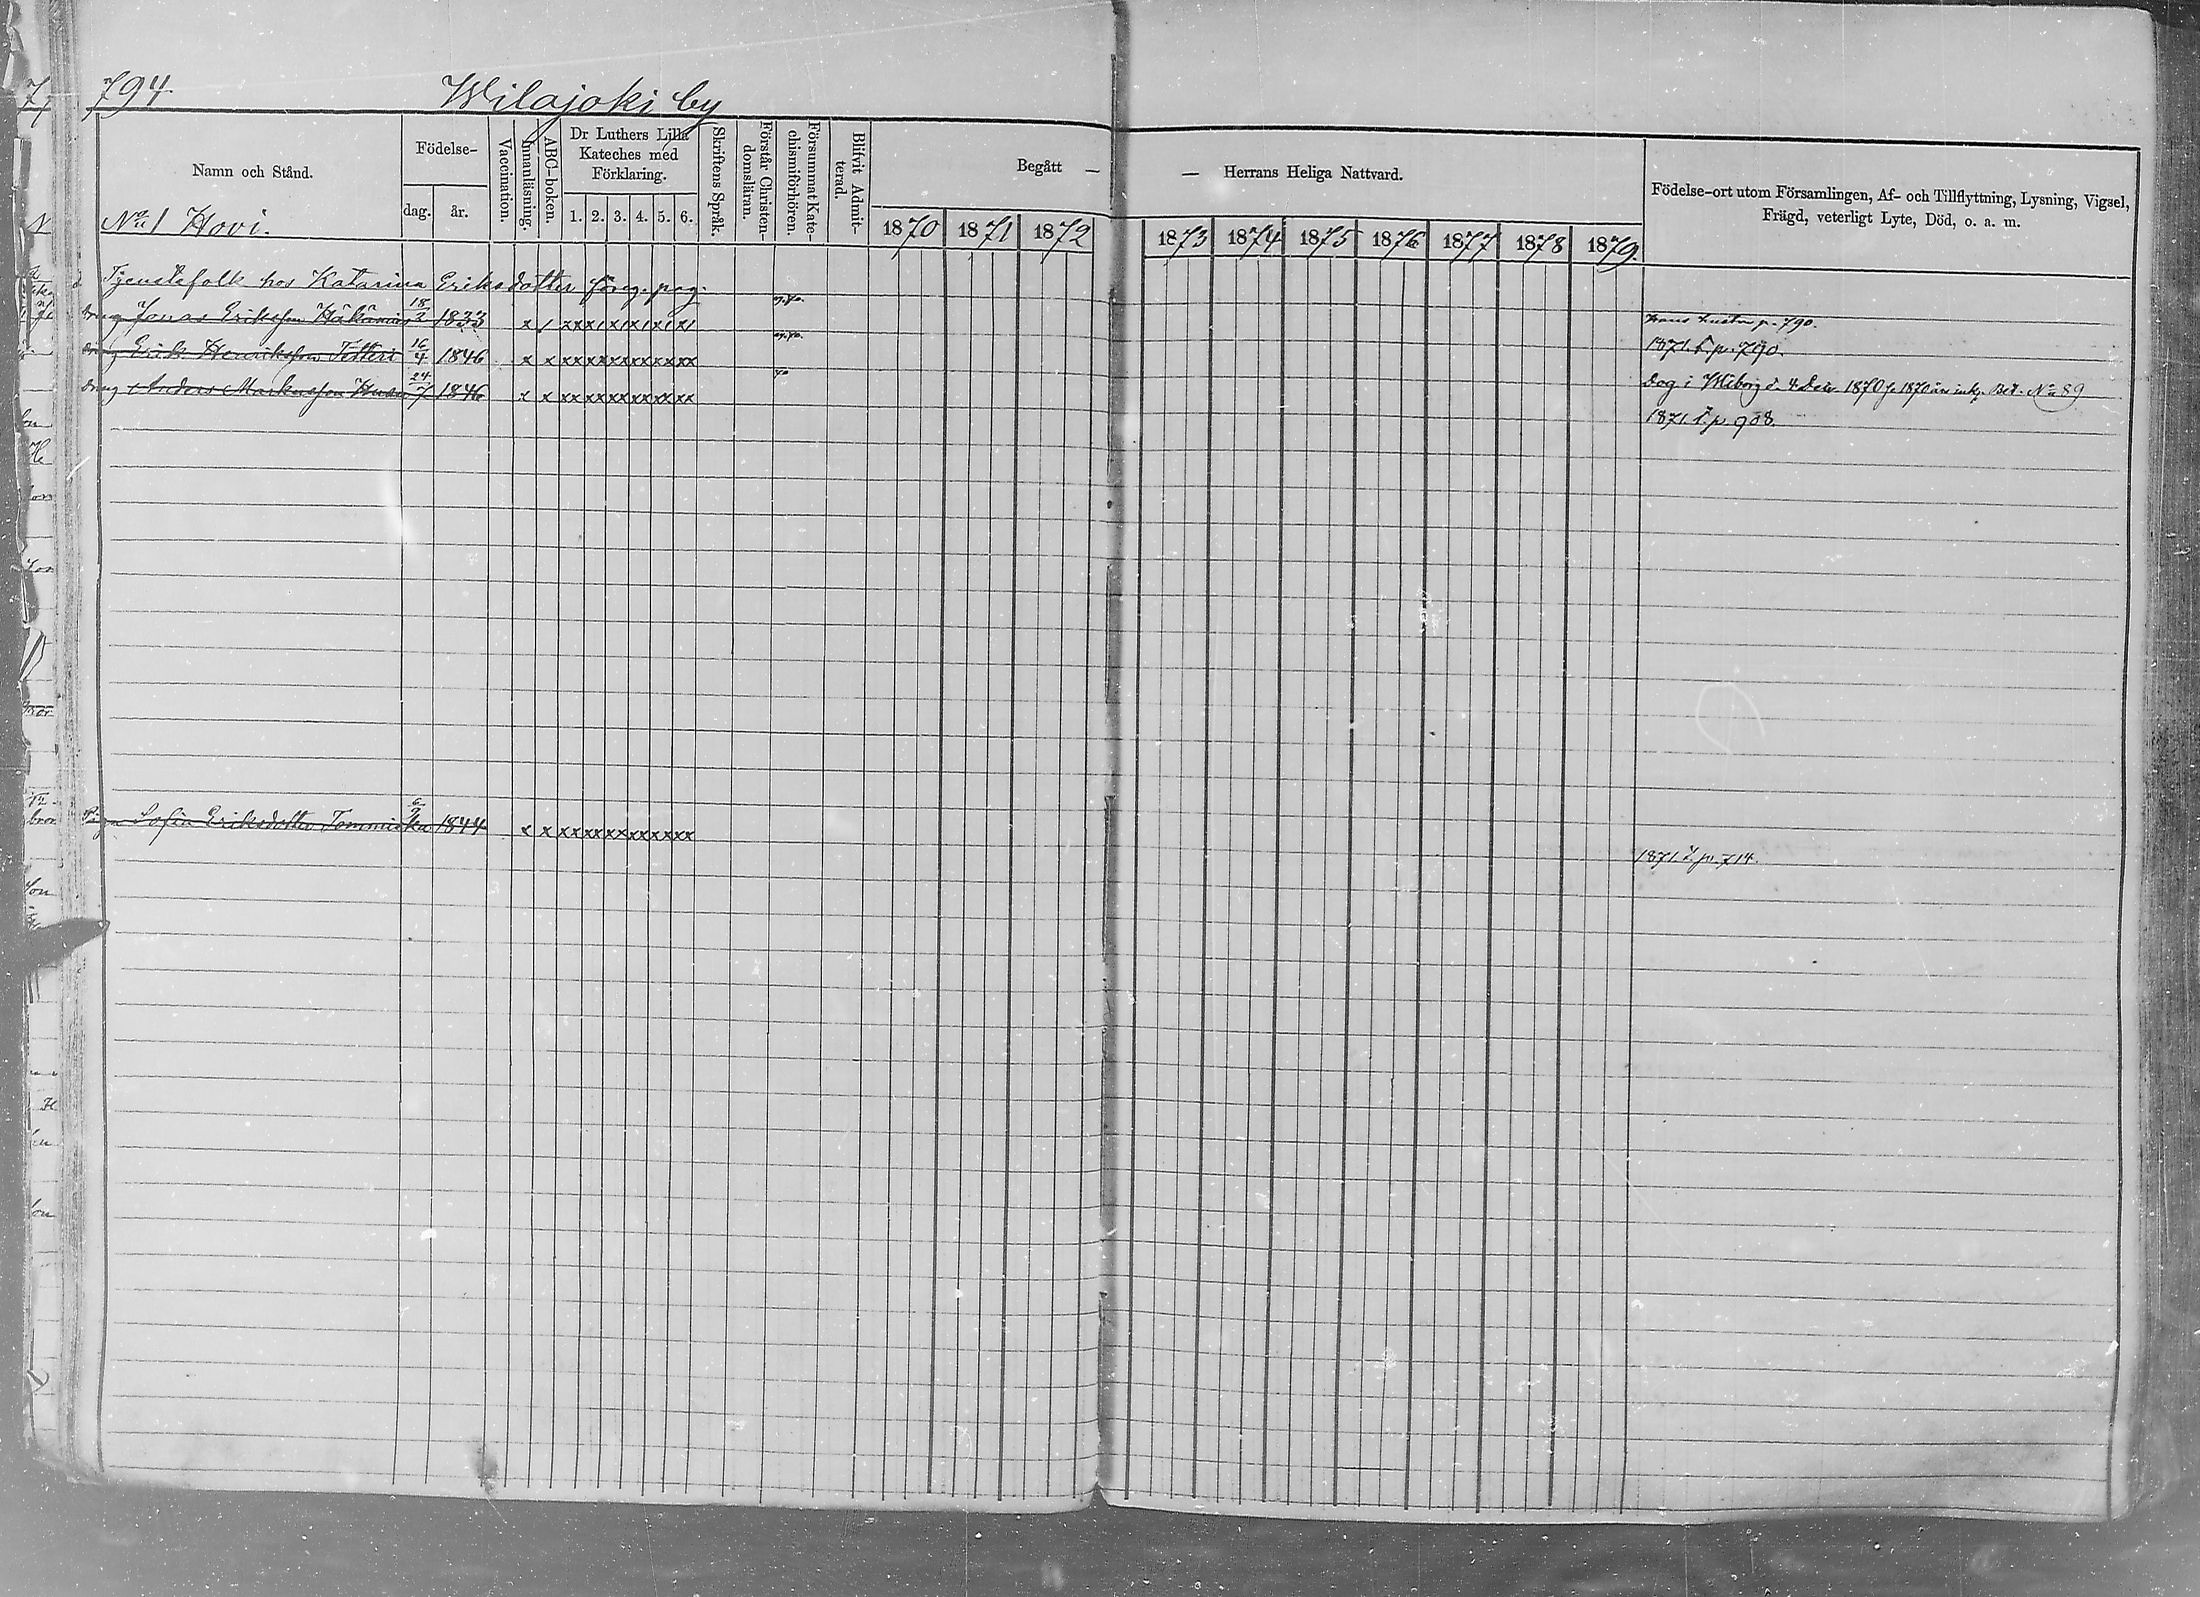 794.
Wilajoki by
Namn och Stånd.
Födelse-
dag. år.
Vaccination.
Innanläsning.
ABC-boken.
Dr Luthers Lilla Kateches med Förklaring.
1. 2. 3. 4. 5. 6.
Skriftens Språk.
Förstår Christendomsläran.
Försummat Katechismiförhören.
Blifvit Admitterad.
Begått — — Herrans Heliga Nattvard.
1870 1871 1872 1873 1874 1875 1876 1877 1878 1879.
Födelse-ort utom Församlingen, Af- och Tillflyttning, Lysning, Vigsel,
Frägd, veterligt Lyte, Död, o. a. m.
No 1 Hovi.
Tjenstefolk hos Katarina Eriksdotter föreg. pag.
Jonas Eriksson 18/2 1833 x / xx x/ x/ x/ x/ x/ p. 790.
Erik Henriksson Tetteri 16/4 1846 x x xx xx xx xx xx xx 1871. p. 790.
Anders Markusson 24/7 1846 x x xx xx xx xx xx xx Dog i Wiborg d. 4 1870 No 89
1871. p. 908.
Sofia Eriksdotter Tommiska 6/9 1844 x x xx xx xx xx xx xx
1871 p. 714.